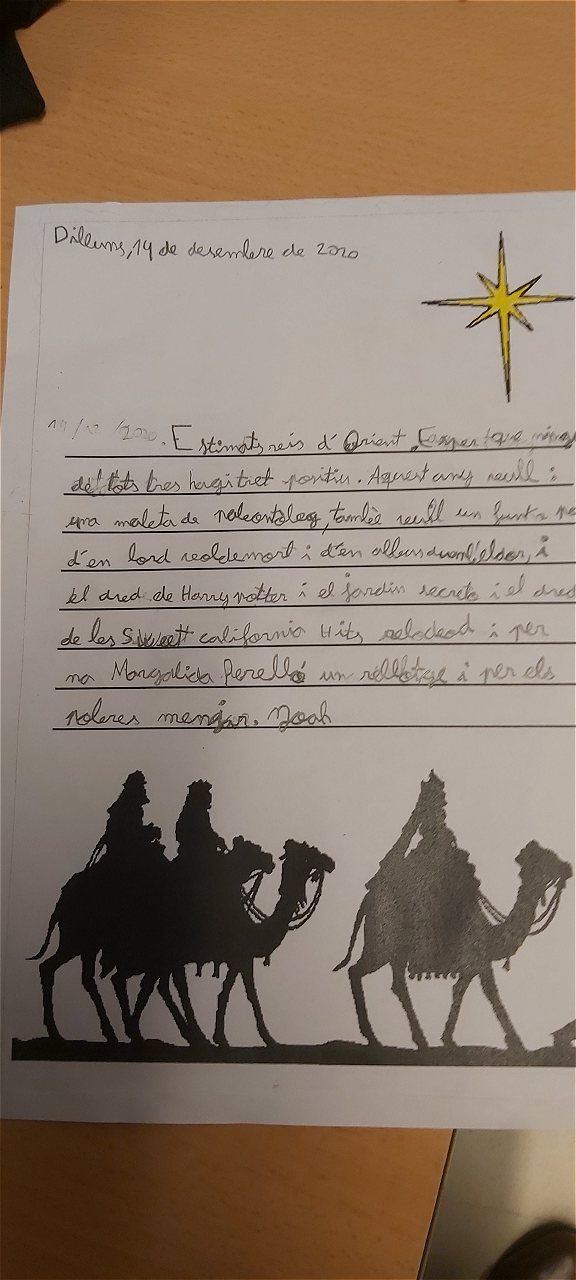 Dilluns, 14 de desembre de 2020
14/12/2020. Estimats reis d'Orient, Esper que
de tots tres hagi tret positiu. Aquest any vull:
una maleta de paleontoleg, també vull un funko
d'en lord voldemort i d'en albus dumbeldor, i
el dvd de Harry potter i el jardin secreto i el dvd
de les Sweet california Hits reloded i per
na Margalida Perelló un rellotge i per els
pobres menjar. Noah